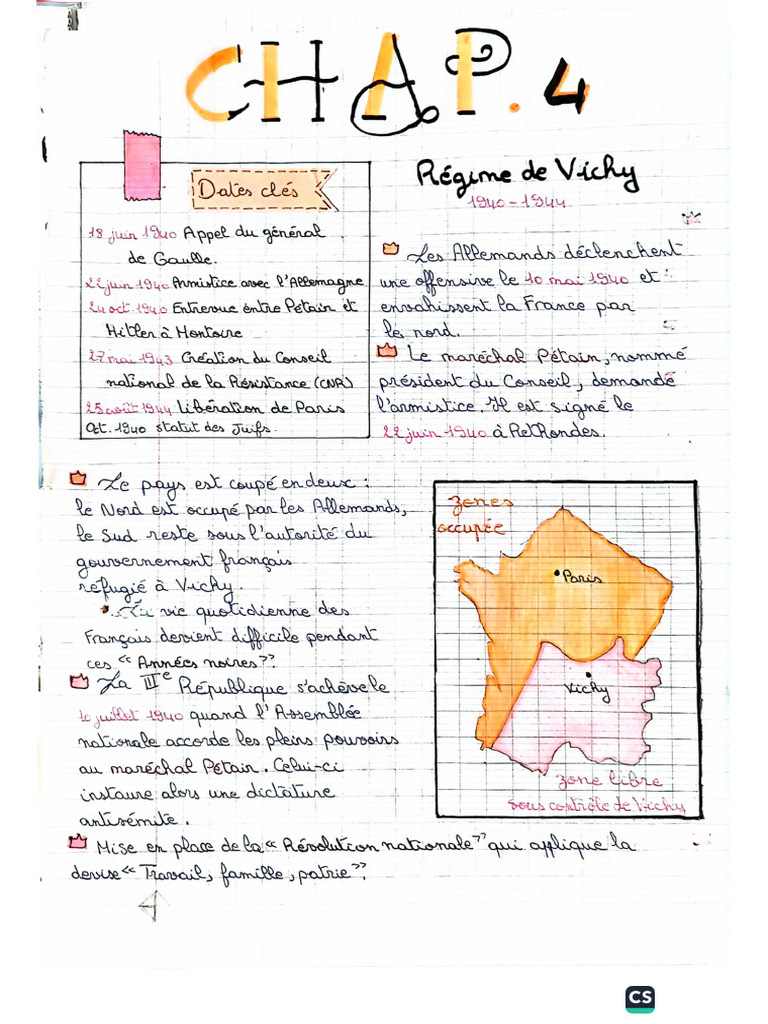 CHAP. 4
Régime de Vichy
1940 - 1944
Dates clés
18 juin 1940 Appel du général
de Gaulle.
22 juin 1940 Armistice avec l'Allemagne
24 oct 1940 Entrevue entre Pétain et
Hitler à Montoire
27 mai 1943 Création du Conseil
national de la Résistance (CNR)
25 août 1944 Libération de Paris
Oct. 1940 statut des Juifs.
Les Allemands déclenchent
une offensive le 10 mai 1940 et
envahissent la France par
le nord.
Le maréchal Pétain, nommé
président du Conseil, demande
l'armistice. Il est signé le
22 juin 1940 à Rethondes.
Le pays est coupé en deux :
le Nord est occupé par les Allemands,
le Sud reste sous l'autorité du
gouvernement français
réfugié à Vichy.
La vie quotidienne des
Français devient difficile pendant
ces "Années noires".
La IIIe République s'achève le
10 juillet 1940 quand l'Assemblée
nationale accorde les pleins pouvoirs
au maréchal Pétain. Celui-ci
instaure alors une dictature
antisémite.
zones
occupée
Paris
Vichy
zone libre
sous contrôle de Vichy
Mise en place de la "Révolution nationale" qui applique la
devise "Travail, famille, patrie".
CS